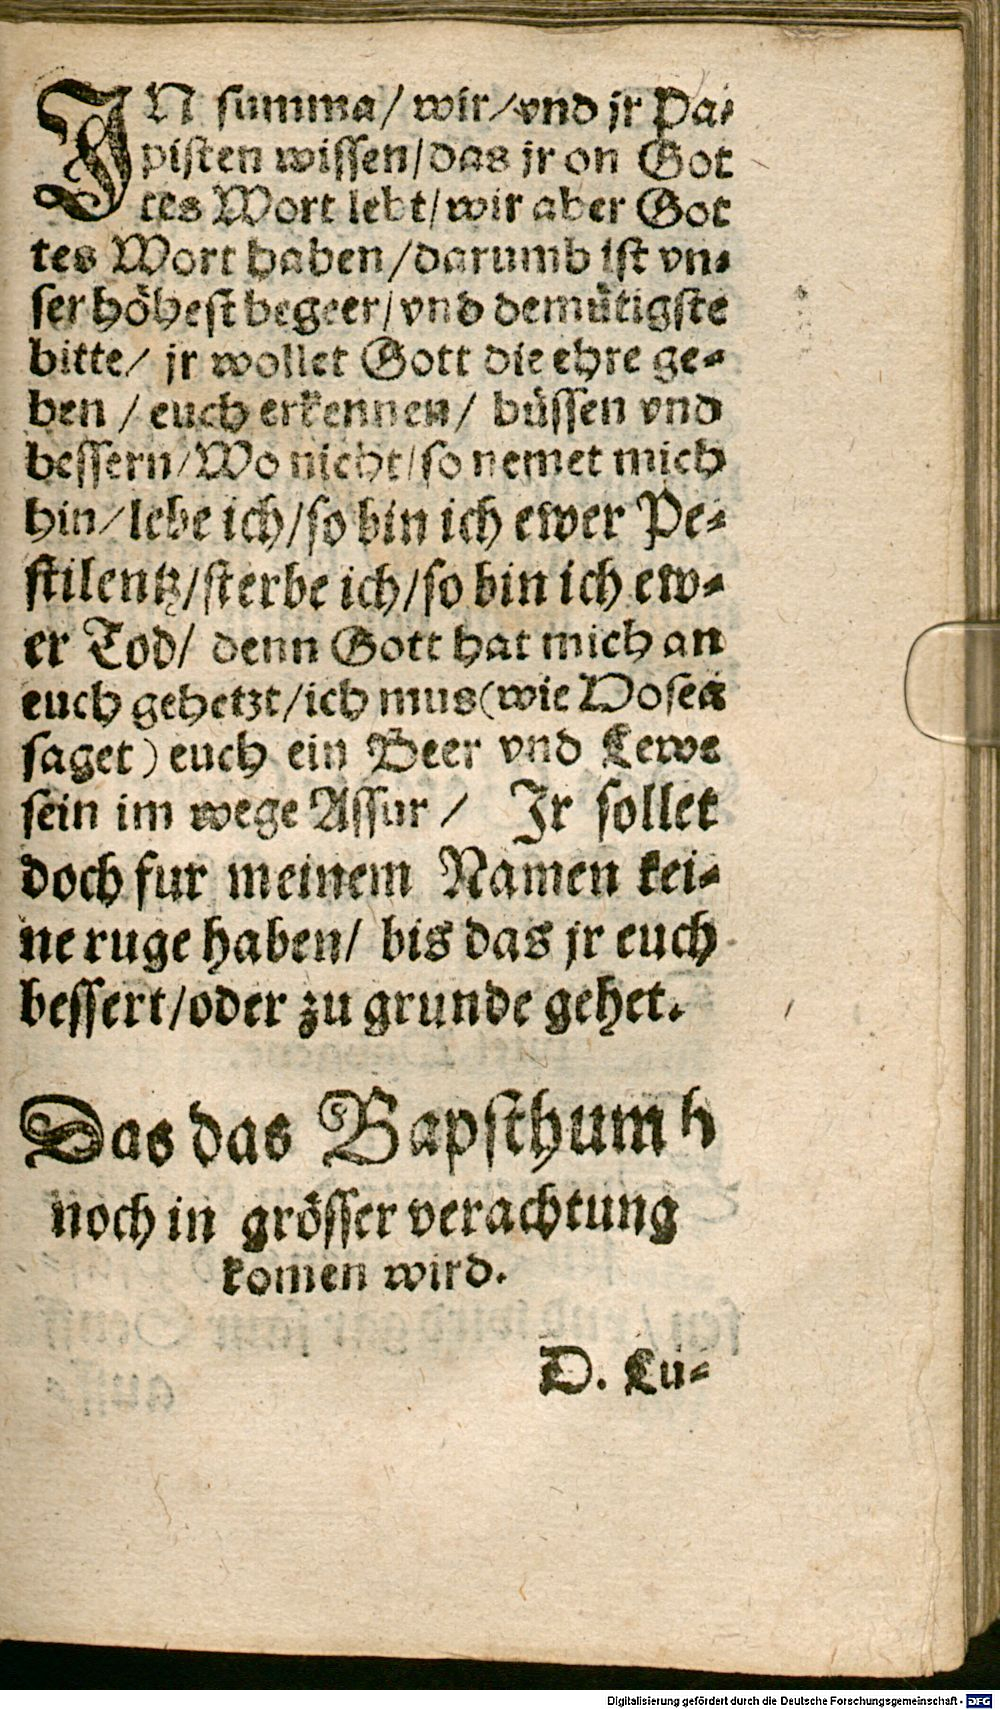 JN summa/ wir/vnd jr Pa-
pisten wissen/das jr on Got
tes Wort lebt/wir aber Got
tes Wort haben/darumb ist vn-
ser höhest begeer/vnd demütigste
bitte/ jr wollet Gott die ehre ge-
ben / euch erkennen/ büssen vnd
bessern/Wo nicht/so nemet mich
hin/lebe ich/so bin ich ewer Pe-
stilentz/sterbe ich/so bin ich ew-
er Tod/ denn Gott hat mich an
euch gehetzt/ich mus(wie Hosea
saget) euch ein Beer vnd Lewe
sein im wege Assur / Jr sollet
doch fur meinem Namen kei-
ne ruge haben/ bis das jr euch
bessert/oder zu grunde gehet.
Das das Bapsthumb
noch in grösser verachtung
komen wird.
D. Lu-
Digitalisierung gefördert durch die Deutsche Forschungsgemeinschaft - DFG